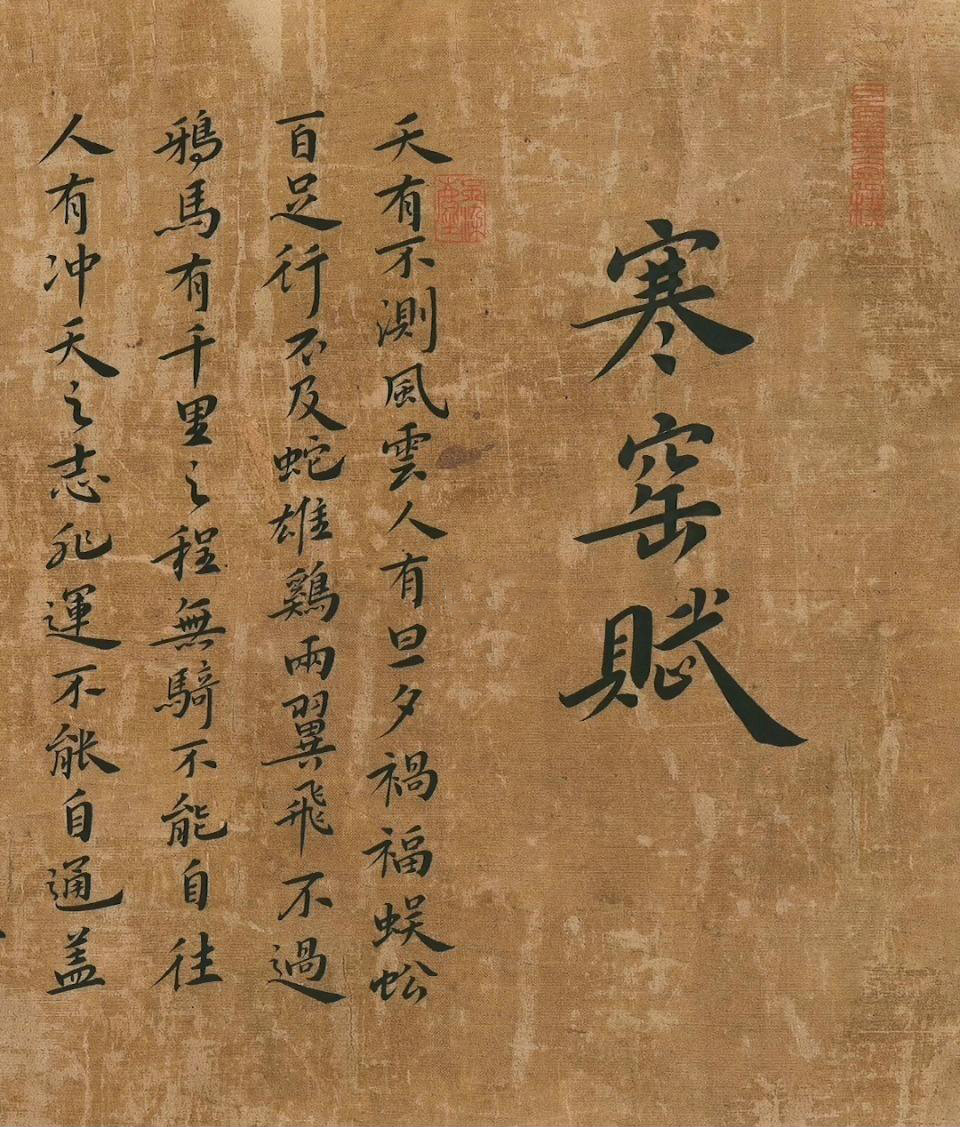 寒窑賦
天有不測風雲人有旦夕禍福蜈蚣
百足行不及蛇雄鷄兩翼飛不過
鴉馬有千里之程無騎不能自往
人有冲天之志非運不能自通盖